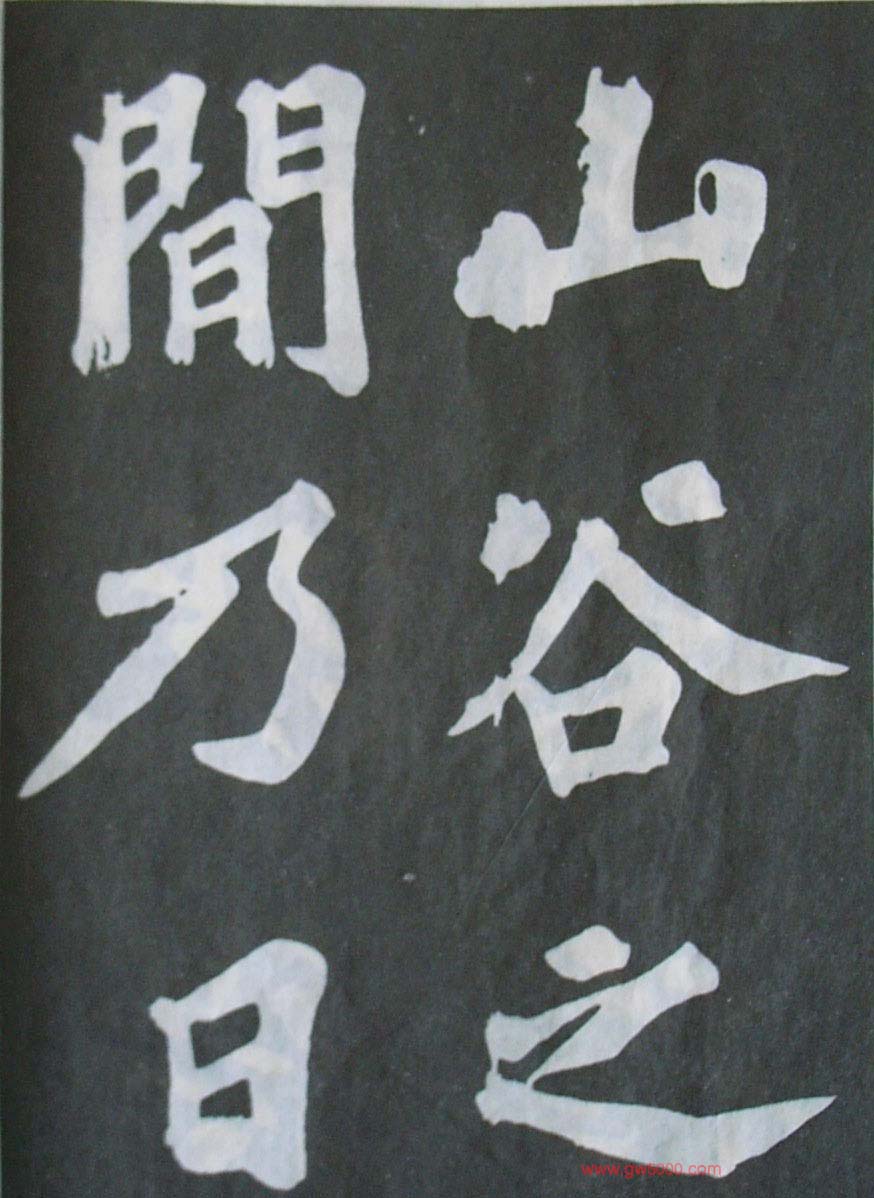 山谷之
間乃日
www.gw5000.com